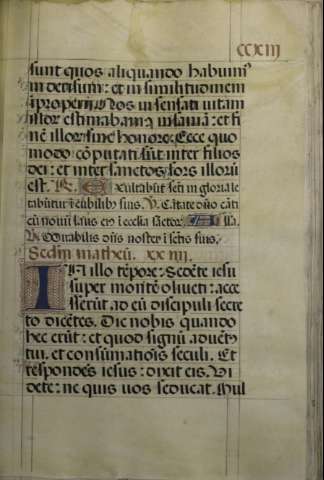 ccxiii
sunt quos aliquando habuim⁹
in derisum: et in similitudinem
īproperij. Nos insensati uitam
illor estimabam⁹ insaniā: et fi
nē illor sine honore: Ecce quo
modo cōputati sūt inter filios
dei: et inter sanctos sors illorū
est. R. Exultabūt scti in gloria le
tabūtur in cubilib⁹ suis. V. Cātate dn̄o cāti
cū nouū laus ei⁹ ī ecclia sāctor. Alla.
V. Mirabilis dn̄s noster ī sctis suis.
Scd̄m matheū. xxiiii.
In illo tēpore: Sedēte iesu
super montē oliueti: acce
sserūt ad eū discipuli secre
to dicētes. Dic nobis quando
hec erūt: et quod signū aduēt⁹
tui, et consūmatiōis seculi. Et
respondēs iesus: dixit eis. Vi
dete: ne quis uos seducat. Mul